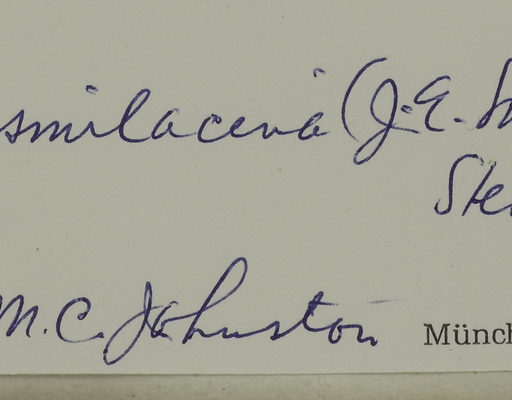 smilacina (J. E. Sm
Ste
M. C. Johnston Münch